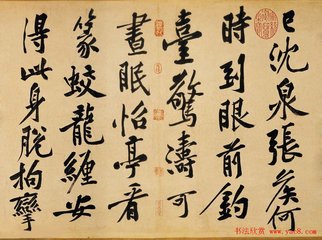 已沈泉張侯何
時到眼前釣
臺驚濤可
晝眠怡亭看
篆蛟龍纏安
得此身脫拘攣
书法欣赏 www.yac8.com